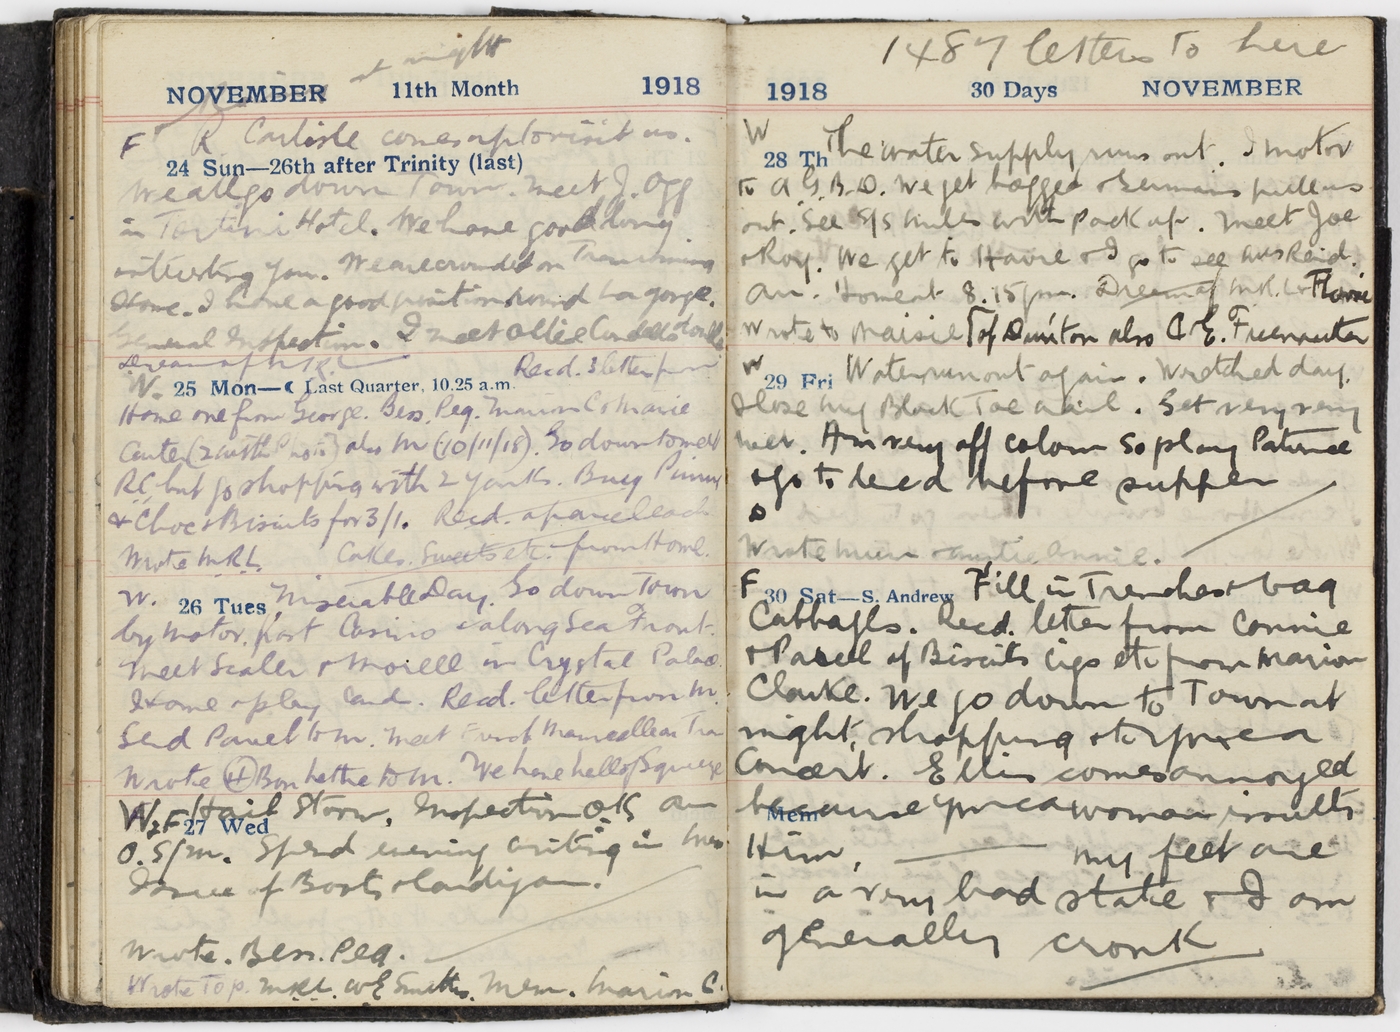 at night
NOVEMBER 11th Month 1918
F R. Carlisle comes up to visit us.
24 Sun—26th after Trinity (last)
We all go down Town. Meet J. Ogg
in Hotel. We have good long
interesting yarn. We are crowded on Tram coming
Home. I have a good position round
General Inspection. I meet Ollie
Dream of M.R.L. Recd. 3 letters from
W. 25 Mon—☾ Last Quarter, 10.25 a.m.
Home one from George. Bess. Peg. Marion C & Marie
Carter (2 with ) also M (10/11/18). Go down to meet
RC but go shopping with 2 Yanks. Buy
& Choc & Biscuits for 3/1. Recd. a parcel each
Wrote M.R.L. Cakes. Sweets etc. from Home.
W. 26 Tues Miserable Day. Go down Town
by motor, past Casino & along Sea Front.
Meet Scaler & Morell in Crystal Palace.
Home & play Card. Recd. letter from M.
Send Parcel to M. Meet
Wrote to M. We have hell of Squeeze
W & F 27 Wed Hail Storm, Inspection OK am
O.S/m. Spend evening writing in mess
Issue of Boots & Cardigan.
Wrote. Bess. Peg.
Wrote Top. MRL. WE Smith. Mem. Marion C.
1487 letters to here
1918 30 Days NOVEMBER
W 28 Th The water supply runs out. I motor
to A.G.B.D. We get bogged & Germans pull us
out. See S/S Mules with pack up. Meet Joe
& Roy. We get to Havre & I go to see Reid.
8.15 pm. Dream of M.R.L. Florrie
Wrote to Maisie Top Dunton also C. E.
W 29 Fri Water runs out again. Wretched day.
I lose my Black Toe nail. Get very very
wet. Am very off colour so play Patience
& go to bed before supper
Wrote Mum & Auntie Annie.
F 30 Sat—S. Andrew Fill in Trenches & bag
Cabbages. Recd. letter from Connie
& Parcel of Biscuits Cigs etc from Marion
Clarke. We go down to Town at
night, shopping & to a
Concert. Ellis comes annoyed
Mem because a woman insults
Him, my feet are
in a very bad state & I am
generally cronk